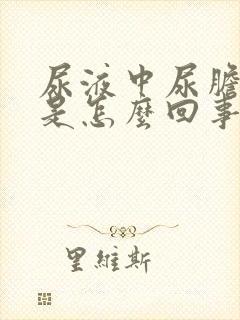 尿液中尿膽
是怎麼回事
里維斯